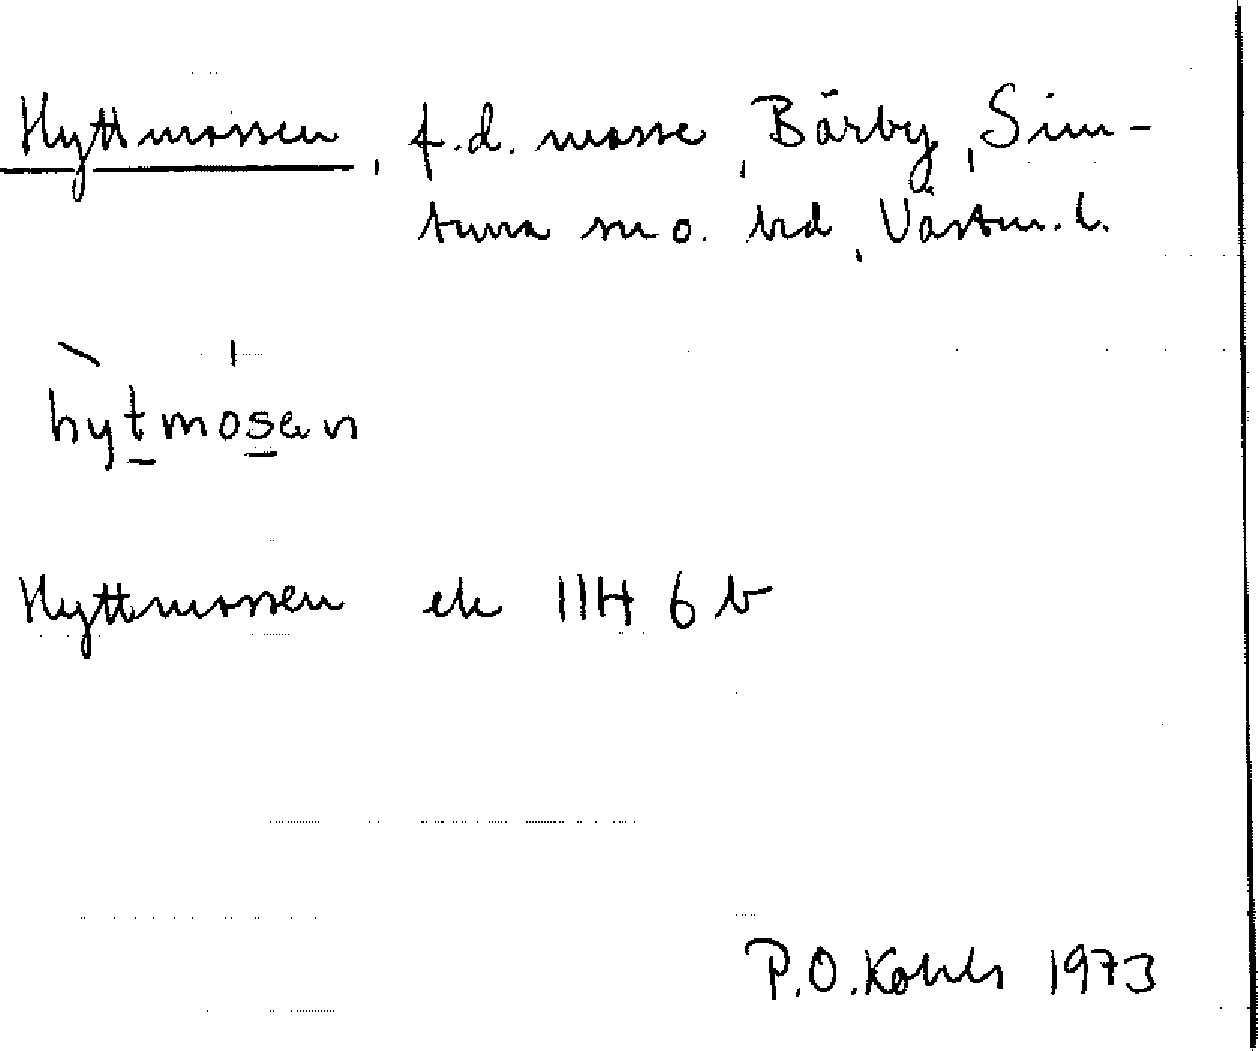 Hyttmossen, f.d. mosse, Bärby, Sim-
tuna sn o. hd, Västm. l.
hytmosen
Hyttmossen ek 11H 6 b
P.O. Kohls 1973